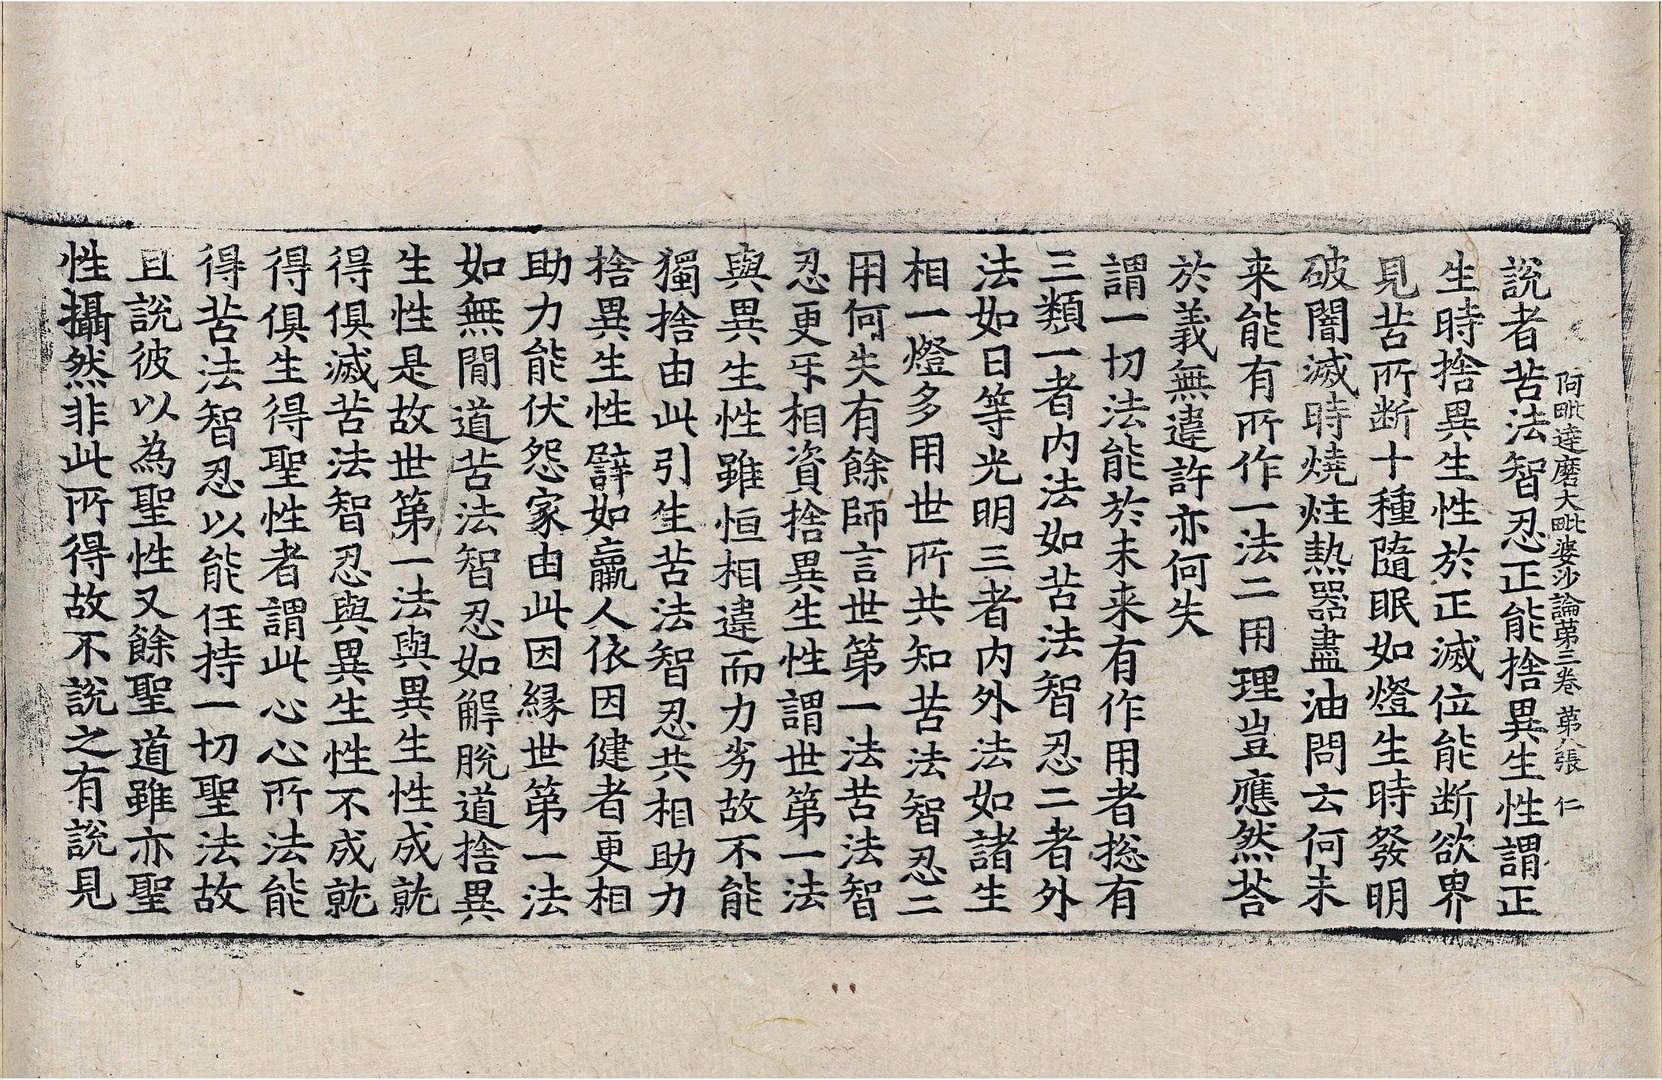 阿毗達磨大毗婆沙論第三卷 第八張 仁
說者苦法智忍正能捨異生性謂正
生時捨異生性於正滅位能断欲界
見苦所断十種隨眠如燈生時發明
破闇滅時燒炷熱器盡油問云何未
来能有所作一法二用理豈應然荅
於義無違許亦何失
謂一切法能於未来有作用者揔有
三類一者內法如苦法智忍二者外
法如日等光明三者內外法如諸生
相一燈多用世所共知苦法智忍二
用何失有餘師言世第一法苦法智
忍更㸦相資捨異生性謂世第一法
與異生性雖恒相違而力劣故不能
獨捨由此引生苦法智忍共相助力
捨異生性譬如羸人依因健者更相
助力能伏怨家由此因縁世第一法
如無閒道苦法智忍如解脫道捨異
生性是故世第一法與異生性成就
得俱滅苦法智忍與異生性不成就
得俱生得聖性者謂此心心所法能
得苦法智忍以能任持一切聖法故
且說彼以為聖性又餘聖道雖亦聖
性攝然非此所得故不說之有說見